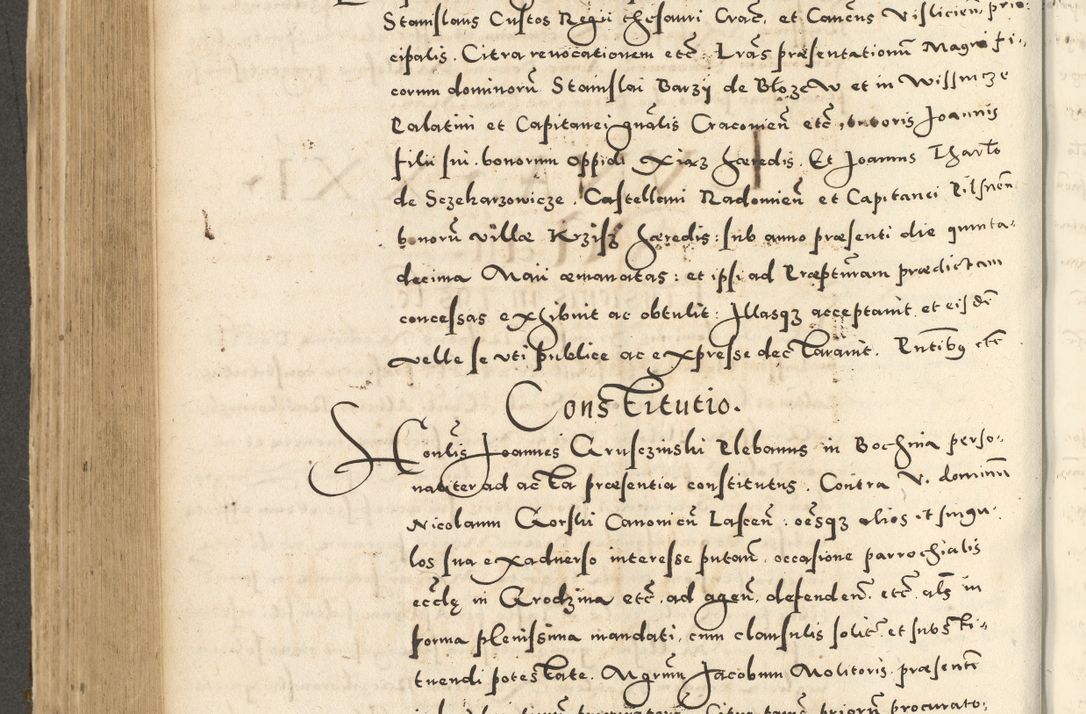 Stanislaus Custos Regni thesauri Crac̄. et Canc̄us Visliciēn, prin-
cipalis. Citra revocationem etc̄. Lrās præsentationū Magnifi-
corum dominorū Stanislai Barzij de Błozew et in Wissnicze
Palatini et Capitanei gnālis Cracoviēn etc̄. tutoris Joannis
filii sui. bonorum oppidi Xiąz hæredis. Et Joannis Tharło
de Sczekarzowicze. Castellani Radomiēn et Capitanei Pilsnēn
bonorū villæ Krzisz hæredis: sub anno præsenti die quinta-
decima Maii æmanatas: et ipsi ad Præpturam prædictam
concessas exhibuit ac obtulit: Illasqз acceptavit et eisdē
velle se uti publice ac expresse declaravit. Pntibus etc̄
Constitutio.
Honlis Joannes Grusczinski Plebanus in Bochnia perso-
naliter ad acta præsentia constitutus. Contra V. dominum
Nicolaum Gorski Canonicū Lascēn. oēsqз alios et singu-
los sua exadverso interesse putan̄. occasione parrochialis
ecclę in Grodzina etc̄. ad agen̄. defenden̄. etc̄. als in
forma plenissima mandati. cum clausulis solit̄. et substi-
tuendi potestate. Mgrum Jacobum Molitoris. præsentē